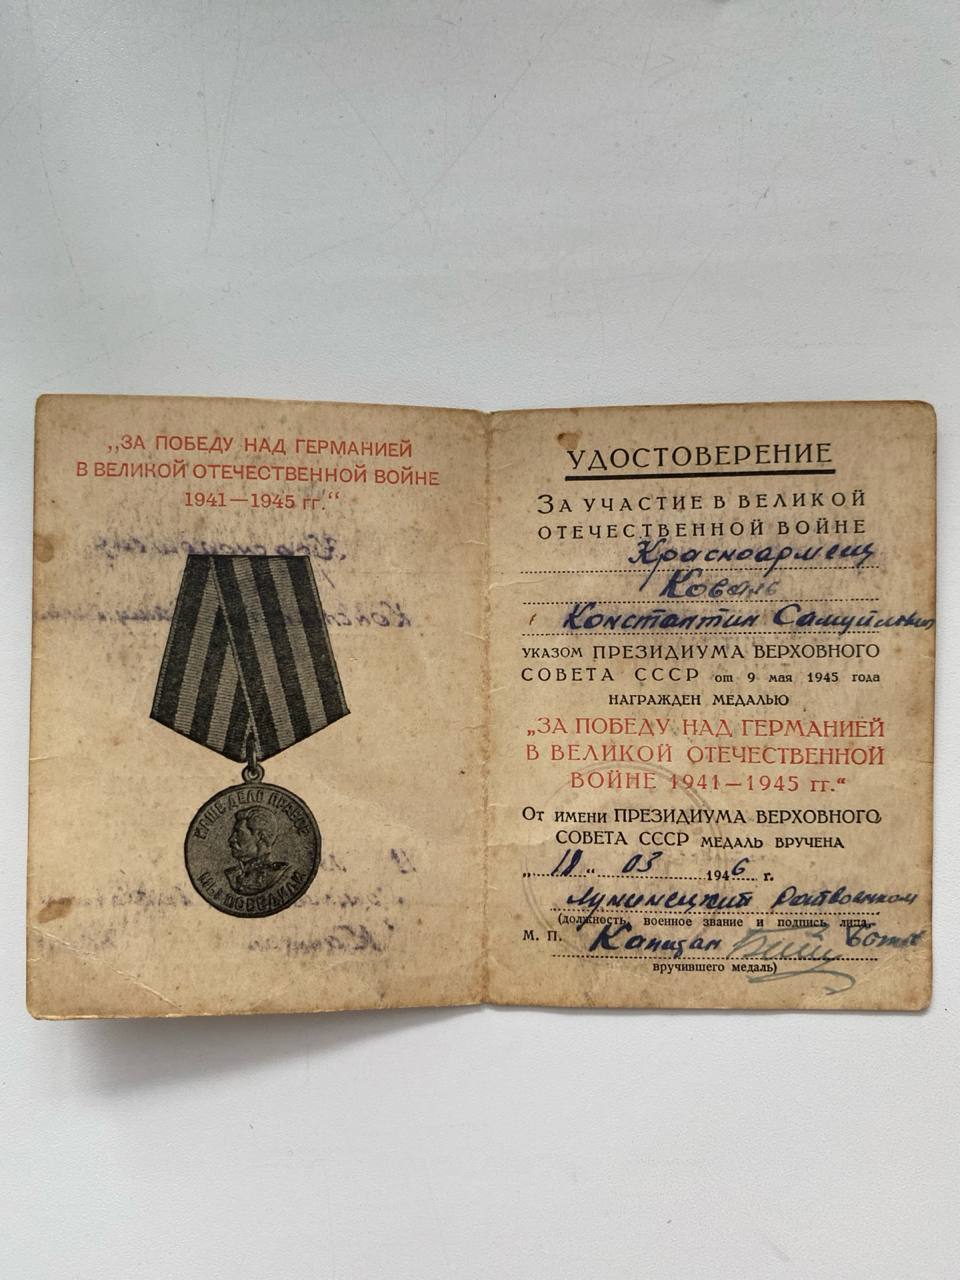 „ЗА ПОБЕДУ НАД ГЕРМАНИЕЙ
В ВЕЛИКОЙ ОТЕЧЕСТВЕННОЙ ВОЙНЕ
1941—1945 гг.“
НАШЕ ДЕЛО ПРАВОЕ
МЫ ПОБЕДИЛИ
УДОСТОВЕРЕНИЕ
ЗА УЧАСТИЕ В ВЕЛИКОЙ
ОТЕЧЕСТВЕННОЙ ВОЙНЕ
Красноармеец
Коваль
Константин Самуилович
УКАЗОМ ПРЕЗИДИУМА ВЕРХОВНОГО
СОВЕТА СССР от 9 мая 1945 года
НАГРАЖДЕН МЕДАЛЬЮ
„ЗА ПОБЕДУ НАД ГЕРМАНИЕЙ
В ВЕЛИКОЙ ОТЕЧЕСТВЕННОЙ
ВОЙНЕ 1941—1945 гг.“
ОТ ИМЕНИ ПРЕЗИДИУМА ВЕРХОВНОГО
СОВЕТА СССР МЕДАЛЬ ВРУЧЕНА
03 1946 г.
Лунинецкий Райвоенком
(должность, военное звание и подпись лица,
М. П. Капитан
вручившего медаль)